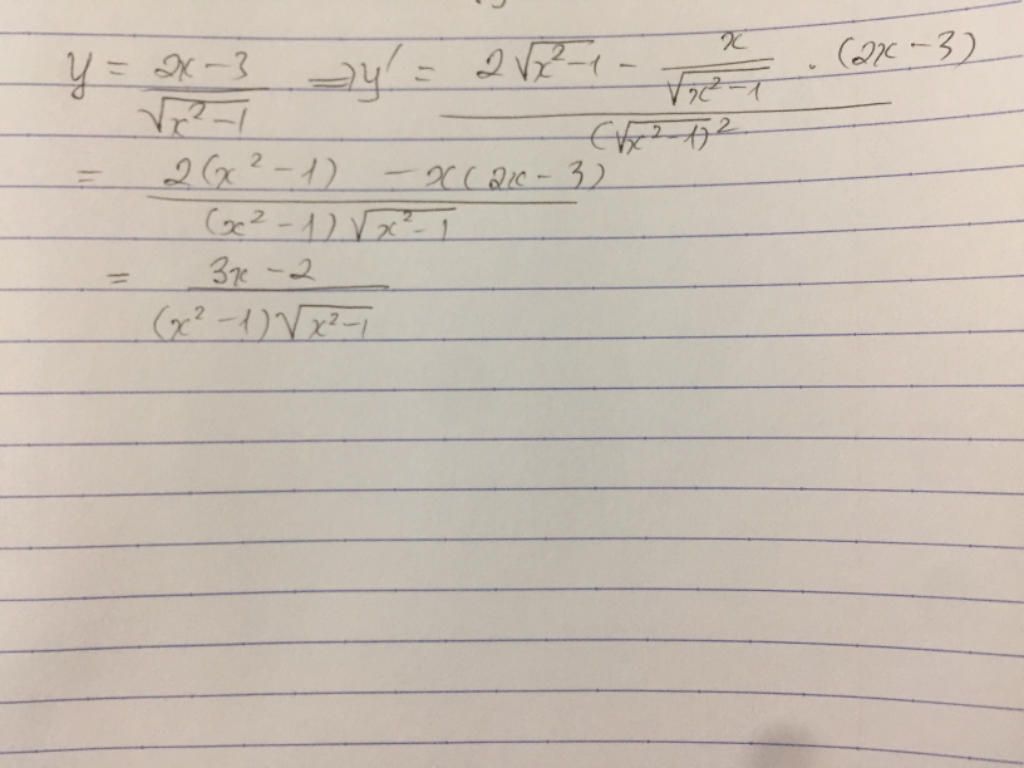 y = (2x - 3)/(√(x² - 1)) ⇒ y' = (2√(x² - 1) - x/(√(x² - 1)) . (2x - 3))/((√(x² - 1))²)
= (2(x² - 1) - x(2x - 3))/((x² - 1)√(x² - 1))
= (3x - 2)/((x² - 1)√(x² - 1))